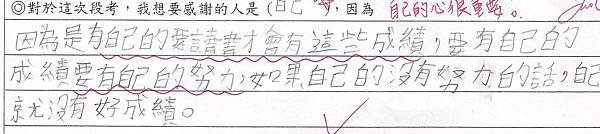 ◎對於這次段考，我想要感謝的人是（自己），因為 自己的心很重要。
因為是有自己的要讀書才會有這些成績，要有自己的
成績要有自己的努力，如果自己的沒有努力的話，自己
就沒有好成績。